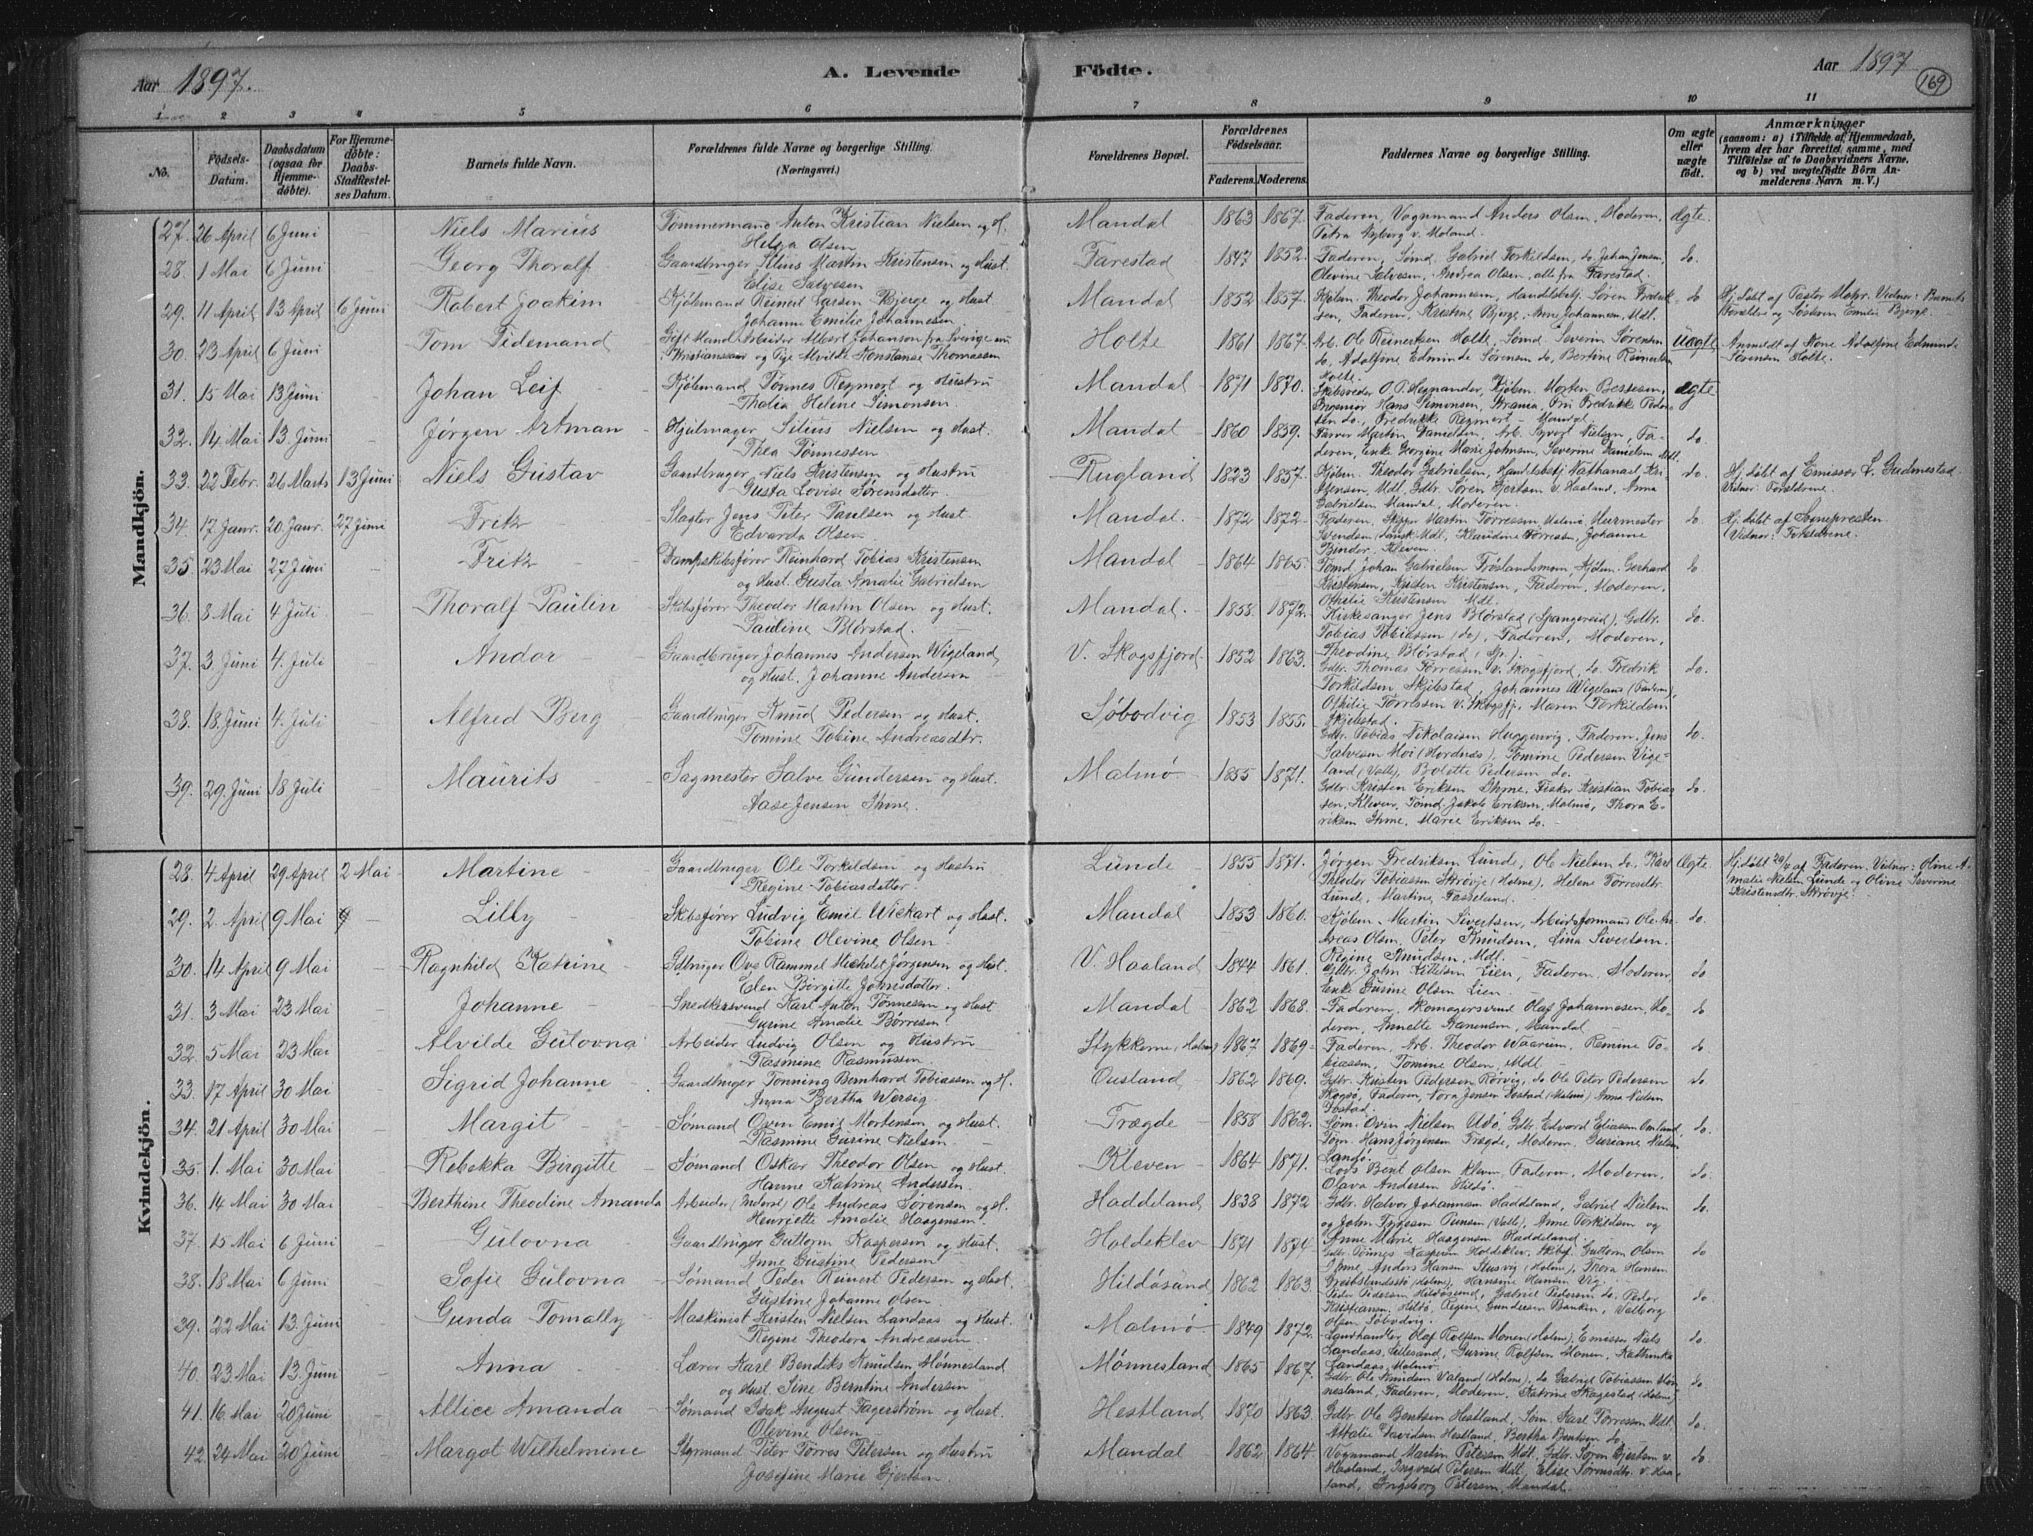 Aar 1897.
A. Levende Födte.
Aar 1897
169
1 2 3 4 5 6 7 8 9 10 11
No.
Födsels-Datum.
Daabsdatum (ogsaa för Hjemme-döbte).
For Hjemme-döbte: Daabs-Stadfæstel-ses Datum.
Barnets fulde Navn.
Forældrenes fulde Navne og borgerlige Stilling. (Næringsvei.)
Forældrenes Bopæl.
Forældrenes Födselsaar.
Faderens. Moderens.
Faddernes Navne og borgerlige Stilling.
Om ægte eller uægte födt.
Anmærkninger
(saasom: a) i Tilfælde af Hjemmedaab, hvem der har forrettet samme, med Tilföielse af to Daabsvidners Navne, og b) ved uægtefödte Börn An-melderens Navn m. V.)
Mandkjön.
27. 26 April 6 Juni - Niels Marius Tømmermand Anton Kristian Nielsen og H. Mandal 1863 1867. Faderen, Vognmand Anders Olsen, Moderen, Ægte.
Helga Olsen Petra Nyberg v. Moland.
28. 1 Mai 6 Juni - Georg Thoralf Gaardbruger Silius Martin Kristensen og Hust. Farestad 1847 1852. Faderen, Sømd. Gabriel Torkildsen, do. Johan Jensen, do.
Elise Salvesen Olevine Salvesen, Andrea Olsen, alle fra Farestad.
29. 11 April 13 April 6 Juni Robert Joakim Kjølemand Reinert Larsen Bjerge og Hust. Mandal 1852 1857. Theodor Johannesen, Søren do Hj. døbt af Pastor Vidner: Barnets
Johanne Emilie Johannesen Faderen, Kristine Bjerge, Anne Johannesen, Mdl. Forældre og Søsteren Emilie Bjerge.
30. 23 April 6 Juni - Tom Tidemand Gift Mand Arbeider Albert Johanson fra Sverige nu Holte 1861 1867. Arb. O. Reinertsen Holte, Sømd. Severin Sørensen Uægte Anmeldt af Kone Adolfine Edminde
i Kristianssand og Pige Alvilde Konstanse Thomassen do. Adolfine Edminde Sørensen do. Bertine Reinertsen Sørensen Holte.
Holte.
31. 15 Mai 13 Juni - Johan Leif Kjølemand Tønnes Reymert og Hustru Mandal 1871 1870. Skibsreder O. P. Morten Ægte
Thalia Helene Simonsen. Ingeniør Hans Simonsen, Fredrikke
do., Fredrikke Reymert, Mandal
32. 14 Mai 13. Juni - Jørgen Artman Hjulmager Silius Nielsen og Hust. Mandal 1860 1859. Farver Martin Danielsen, Arb. Syvert Nielsen, Fa- do.
Thea Tønnessen deren, Enke Gorgine Marie Johnsen, Severine Danielsen Mdl.
33. 22 Febr. 26 Marts 13 Juni Niels Gustav Gaardbruger Niels Kristensen og Hustru Rugland 1823 1857. Kjølem. Theodor Gabrielsen, Nathanael Kri- do. Hj. døbt af Emissær L. Gudmestad.
Gusta Lovise Sørensdatter stensen, Mdl. Gdbr. Søren Gjertsen v. Haaland, Anna Vidner: Forældrene.
Gabrielsen Mandal, Moderen.
34. 17 Janr. 20 Janr. 27 Juni Fritz Slagter Jens Peter Paulsen og Hust. Mandal. 1872 1872 Faderen, Skipper Martin Tørressen Malmø, Murmester do. Hj. døbt af Sognepresten.
Edvarda Olsen Svendsen, Klavidine Tørressen, Johanne Vidner: Forældrene.
Kleven.
35. 23 Mai 27 Juni - Fritz Dampskibsfører Reinhard Tobias Kristensen Mandal 1864 1865 Tømd. Johan Gabrielsen Gerhard do
og Hust. Gusta Amalie Gabrielsen Kristensen, Kristen Kristensen, Faderen, Moderen,
Othilie Kristensen Mdl.
36. 8 Mai 4 Juli - Thoralf Paulin Skibsfører Theodor Martin Olsen og Hust. Mandal. 1858. 1872. Kirkesanger Jens Blørstad (Spangereid), Gdbr. do.
Pauline Blørstad. Tobias Tobiassen (do), Faderen, Moderen,
Theodine Blørstad (Sp.).
37. 3. Juni 4. Juli - Andor Gaardbruger Johannes Andersen Wigeland V. Skogsfjord 1852 1863. Gdbr. Thomas Tørressen v. Skogsfjord, do. Fredrik do.
og Hust. Johanne Andersen Torkildsen Skjebstad, Johannes Wigeland (Faderen),
Othilie Tørressen v. Skogsfj., Maren Torkildsen
Skjebstad.
38. 18. Juni 4. Juli - Alfred Berg Gaardbruger Knud Pedersen og Hust. Søbodvig 1853 1855. Gdbr. Tobias Nikolaisen Faderen, Jens do.
Tomine Tobine Andreasdtr. Salvesen Moi Tomine Pedersen Vige-
land (Valle), Bolette Pedersen do.
39. 29 Juni 18 Juli Maurits Sagmester Salve Gundersen og Hust. Malmø 1855 1871. Gdbr. Kristen Eriksen Ihme, Fisker Kristian Tobias- do.
Aase Jensen Ihme. sen, Kleven, Jakob Eriksen, Malmø, Thora E-
riksen Ihme, Marie Eriksen do.
Kvindekjön.
28. 4 April 29 April 2 Mai Martine Gaardbruger Ole Torkildsen og Hustru Lunde 1855 1871. Jørgen Fredriksen Lunde, Ole Nielsen do. Karl Ægte. Hj. døbt af Faderen. Vidner: Oline A-
Regine Tobiasdatter Theodor Tobiassen Skrøvje (Holme), Helene Tørresdtr. malie Nielsen Lunde og Olivie Severine
Lunde, Martine Fasseland. Kristensdtr. Skrøvje.
29. 2. April 9 Mai - Lilly Skibsfører Ludvig Emil Wickart og Hust. Mandal 1853 1860. Kjølem. Martin Sivertsen, Arbeidsformand Ole An- do.
Tobine Olevine Olsen. dreas Olsen, Peter Knudsen, Lina Sivertsen,
Regine Knudsen, Mdl.
30. 14 April 9 Mai - Ragnhild Katrine Gdbruger Ove Rammel Michelet Jørgensen og Hust. V. Haaland 1844 1861. Gdbr. John Kittelsen Lien, Faderen, Moderen, do
Elen Birgitte Johnsdatter. Enke Gurine Olsen Lien
31. 3 Mai 23 Mai - Johanne Snedkersvend Karl Anton Tønnessen og Hust Mandal 1862 1868. Faderen, Skomagersvend Olaf Johannessen, Mo- do
Gurine Amalie Børresen deren, Annette Mandal.
32. 5 Mai 23 Mai - Alvilde Gulovna Arbeider Ludvig Olsen og Hustru Stykkerne (Holme) 1867 1869 Faderen, Arb. Theodor Waarum, Remine To- do
Rasmine Rasmussen. biassen, Tomine Olsen, Mdl.
33. 17 April 30 Mai - Sigrid Johanne Gaardbruger Tønning Bernhard Tobiassen og H. Ousland 1862 1869. Gdbr. Kristen Pedersen Rørvig, do Ole Peter Pedersen do.
Anna Bertha Wersig Skogsø, Faderen, Nora Jensen (Malmø) Anna Nielsen
34. 21 April 30 Mai - Margit Sømand Ovin Emil Mortensen og Hust. Trægde 1858 1862. Søm. Ovin Nielsen Udø, Gdbr. Edvard Eliassen Ousland, do.
Rasmine Gurine Nielsen Tøm. Hans Jørgensen Trægde, Moderen, Guriane Nielsen
Landø.
35. 1. Mai 30 Mai - Rebekka Birgitte Sømand Oskar Theodor Olsen og Hust. Kleven 1864 1871. Lods Bent Olsen Kleven, Faderen, Moderen, do.
Hanne Katrine Andersen. Olava Andersen Hildø.
36. 14 Mai 30 Mai - Berthine Theodine Amanda Arbeider Ole Andreas Sørensen og H. Haddeland 1838 1872 Gdbr. Halvor Johannesen Haddeland, Gabriel Nielsen do.
Henriette Amalie Haagensen. og John (Valle), Anne Torkildsen og
Anne Marie Haagensen Haddeland.
37. 15 Mai 6 Juni - Gulovna Gaardbruger Guttorm Kaspersen og Hust. Holdeklev 1871 1874 Gdbr. Tønnes Kaspersen Holdeklev, Skibsf. Guttorm Olsen do
Anne Gustine Pedersen Ihme, Anders Hansen (Holme), Thora Hansen
(Holme), Hansine Hansen Vig.
38. 18 Mai 6 Juni - Sofie Gulovna Sømand Peder Reinert Pedersen og Hust. Hildøsund 1862 1863. Peder Pedersen Hildøsund, Gabriel Pedersen do. Peder do.
Gustine Johanne Olsen Kristiansen, Hildø, Regine Gundersen Banken, Valborg
Olsen Søbodvig.
39. 22 Mai 13. Juni - Gunda Tomally Maskinist Kristen Nielsen Landaas og Hust. Malmø 1849 1872. Landhandler Olaf Rolfsen Monen (Holme), Emissær Niels do.
Regine Theodora Andreassen Landaas, Lillesand, Gurine Rolfsen Monen, Kathinka
Landaas, Malmø.
40. 23 Mai 13. Juni - Anna Lærer Karl Bendiks Knudsen Mønnesland Mønnesland 1865 1867. Gdbr. Ole Knudsen Valand (Holme), do Gabriel Tobiassen Møn- do
og Hust. Sine Berntine Andersen nesland, Faderen, Moderen, Katrine Skagestad (Holme)
41. 16 Mai 20 Juni - Allice Amanda Sømand Isak August Fagerstrøm og Hust. Hestland 1870 1863. Gdbr. Ole Bentsen Hestland, Søm. Karl Tørressen Mdl. do.
Olevine Olsen Attalie Davidsen Hestland, Bertha Bentsen do.
42. 24 Mai 20 Juni - Margot Wilhelmine Styrmand Peter Tørres Petersen og Hustru Mandal 1862 1864. Vognmand Martin Petersen Mdl. Gdbr. Søren Gjertsen v. do.
Josefine Marie Gjertsen. Haaland, Ingvald Petersen Mdl, Else v. Haa-
land, Ingeborg Petersen, Mandal.